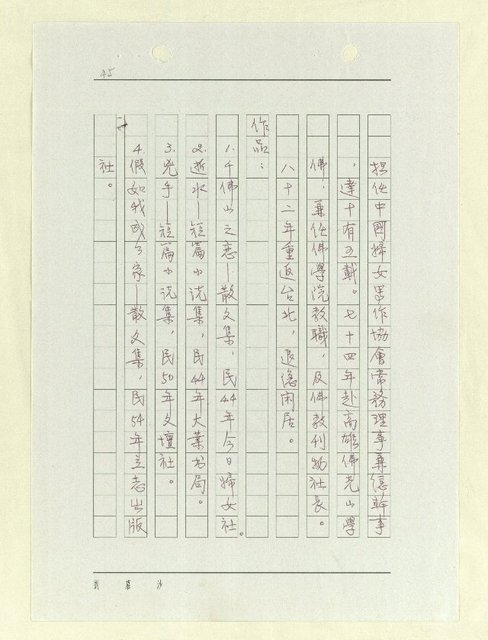 45
担任中國婦女寫作協會常務理事兼總幹事
,達十有五載。七十四年赴高雄佛光山學
佛,兼任佛學院教職,及佛教刊物社長。
八十二年重返台北,退隱閑居。
作品:
1.千佛山之戀—散文集,民44年今日婦女社。
2.逝水—短篇小說集,民44年大業書局。
3.兇手—短篇小說集,民50年文壇社。
4.假如我成了家—散文集,民54年立志出版
社。
劉慕沙